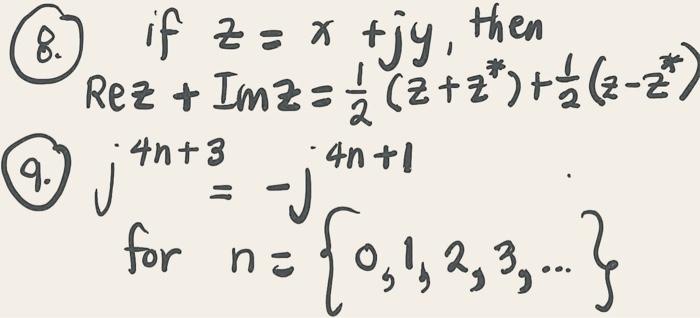 8. if z = x + jy, then
Re z + Im z = 1/2 (z + z*) + 1/2 (z - z*)
9. j^4n+3 = -j^4n+1
for n = {0, 1, 2, 3, ...}